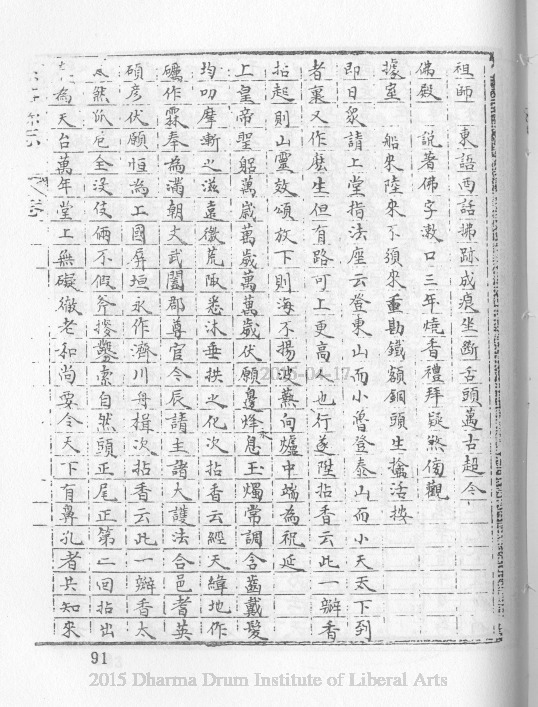 祖師　東語西話掃跡成痕坐斷舌頭萬古超今
佛殿　說著佛字漱口三年燒香禮拜疑煞傍觀
據室　船來陸來不須來重勘鐵額銅頭生擒活按
即日眾請上堂指法座云登東山而小魯登泰山而小天天下到
者裏又作麼生但有路可上更高人也行遂陞拈香云此一瓣香
拈起則山靈效頌放下則海不揚波爇向爐中端為祝延
上皇帝聖躬萬歲萬歲萬萬歲伏願邊烽永息玉燭常調含齒戴髮
均叨摩漸之滋遠徼荒陬悉沐垂拱之化次拈香云經天緯地作
礪作霖奉為滿朝文武闔郡尊官今辰請主諸大護法合邑耆英
碩彥伏願恒為上國屏垣永作濟川舟楫次拈香云此一瓣香太
太然沠卮全沒伎倆不假斧擾鑿索自然頭正尾正第二回拈出
為天台萬年堂上無礙徹老和尚要令天下有鼻孔者共知來
卷
2015-04-17
91
2015 Dharma Drum Institute of Liberal Arts